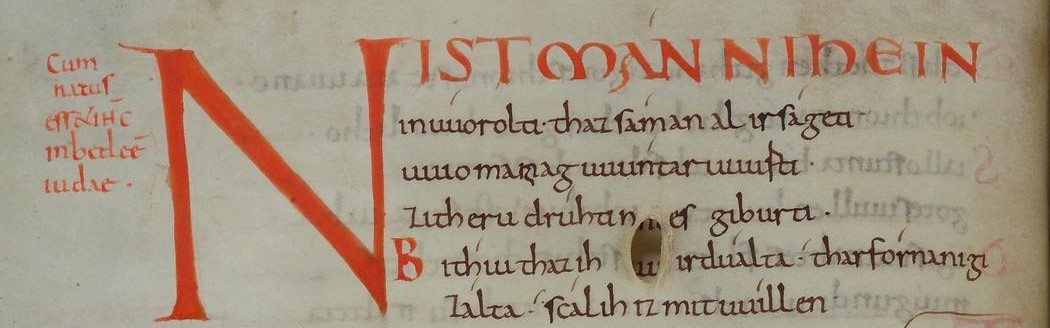 Cum
natus
esset ihc
inbetleē
iudae ·
NIST MANN NIHEIN
inuuorolti · thaz sáman al irságeti ·
uuuo manag uuúntar uuurti ·
zitheru drúhtines giburti ·
Bithiu thaz ih irdualta · thar fornanigi
zálta · scal ih iz mit uuíllen